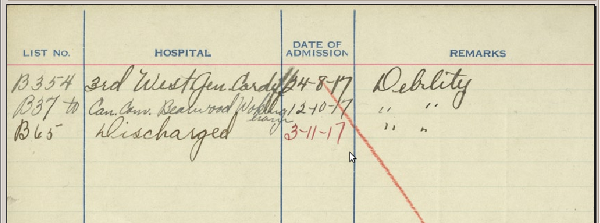 LIST No. HOSPITAL DATE OF ADMISSION REMARKS
B354 3rd West Gen Cardiff 24-8-17 Debility
B37 to Can. Con. Bearwood Wokingham 12-10-17 " "
B65 Discharged 3-11-17 " "